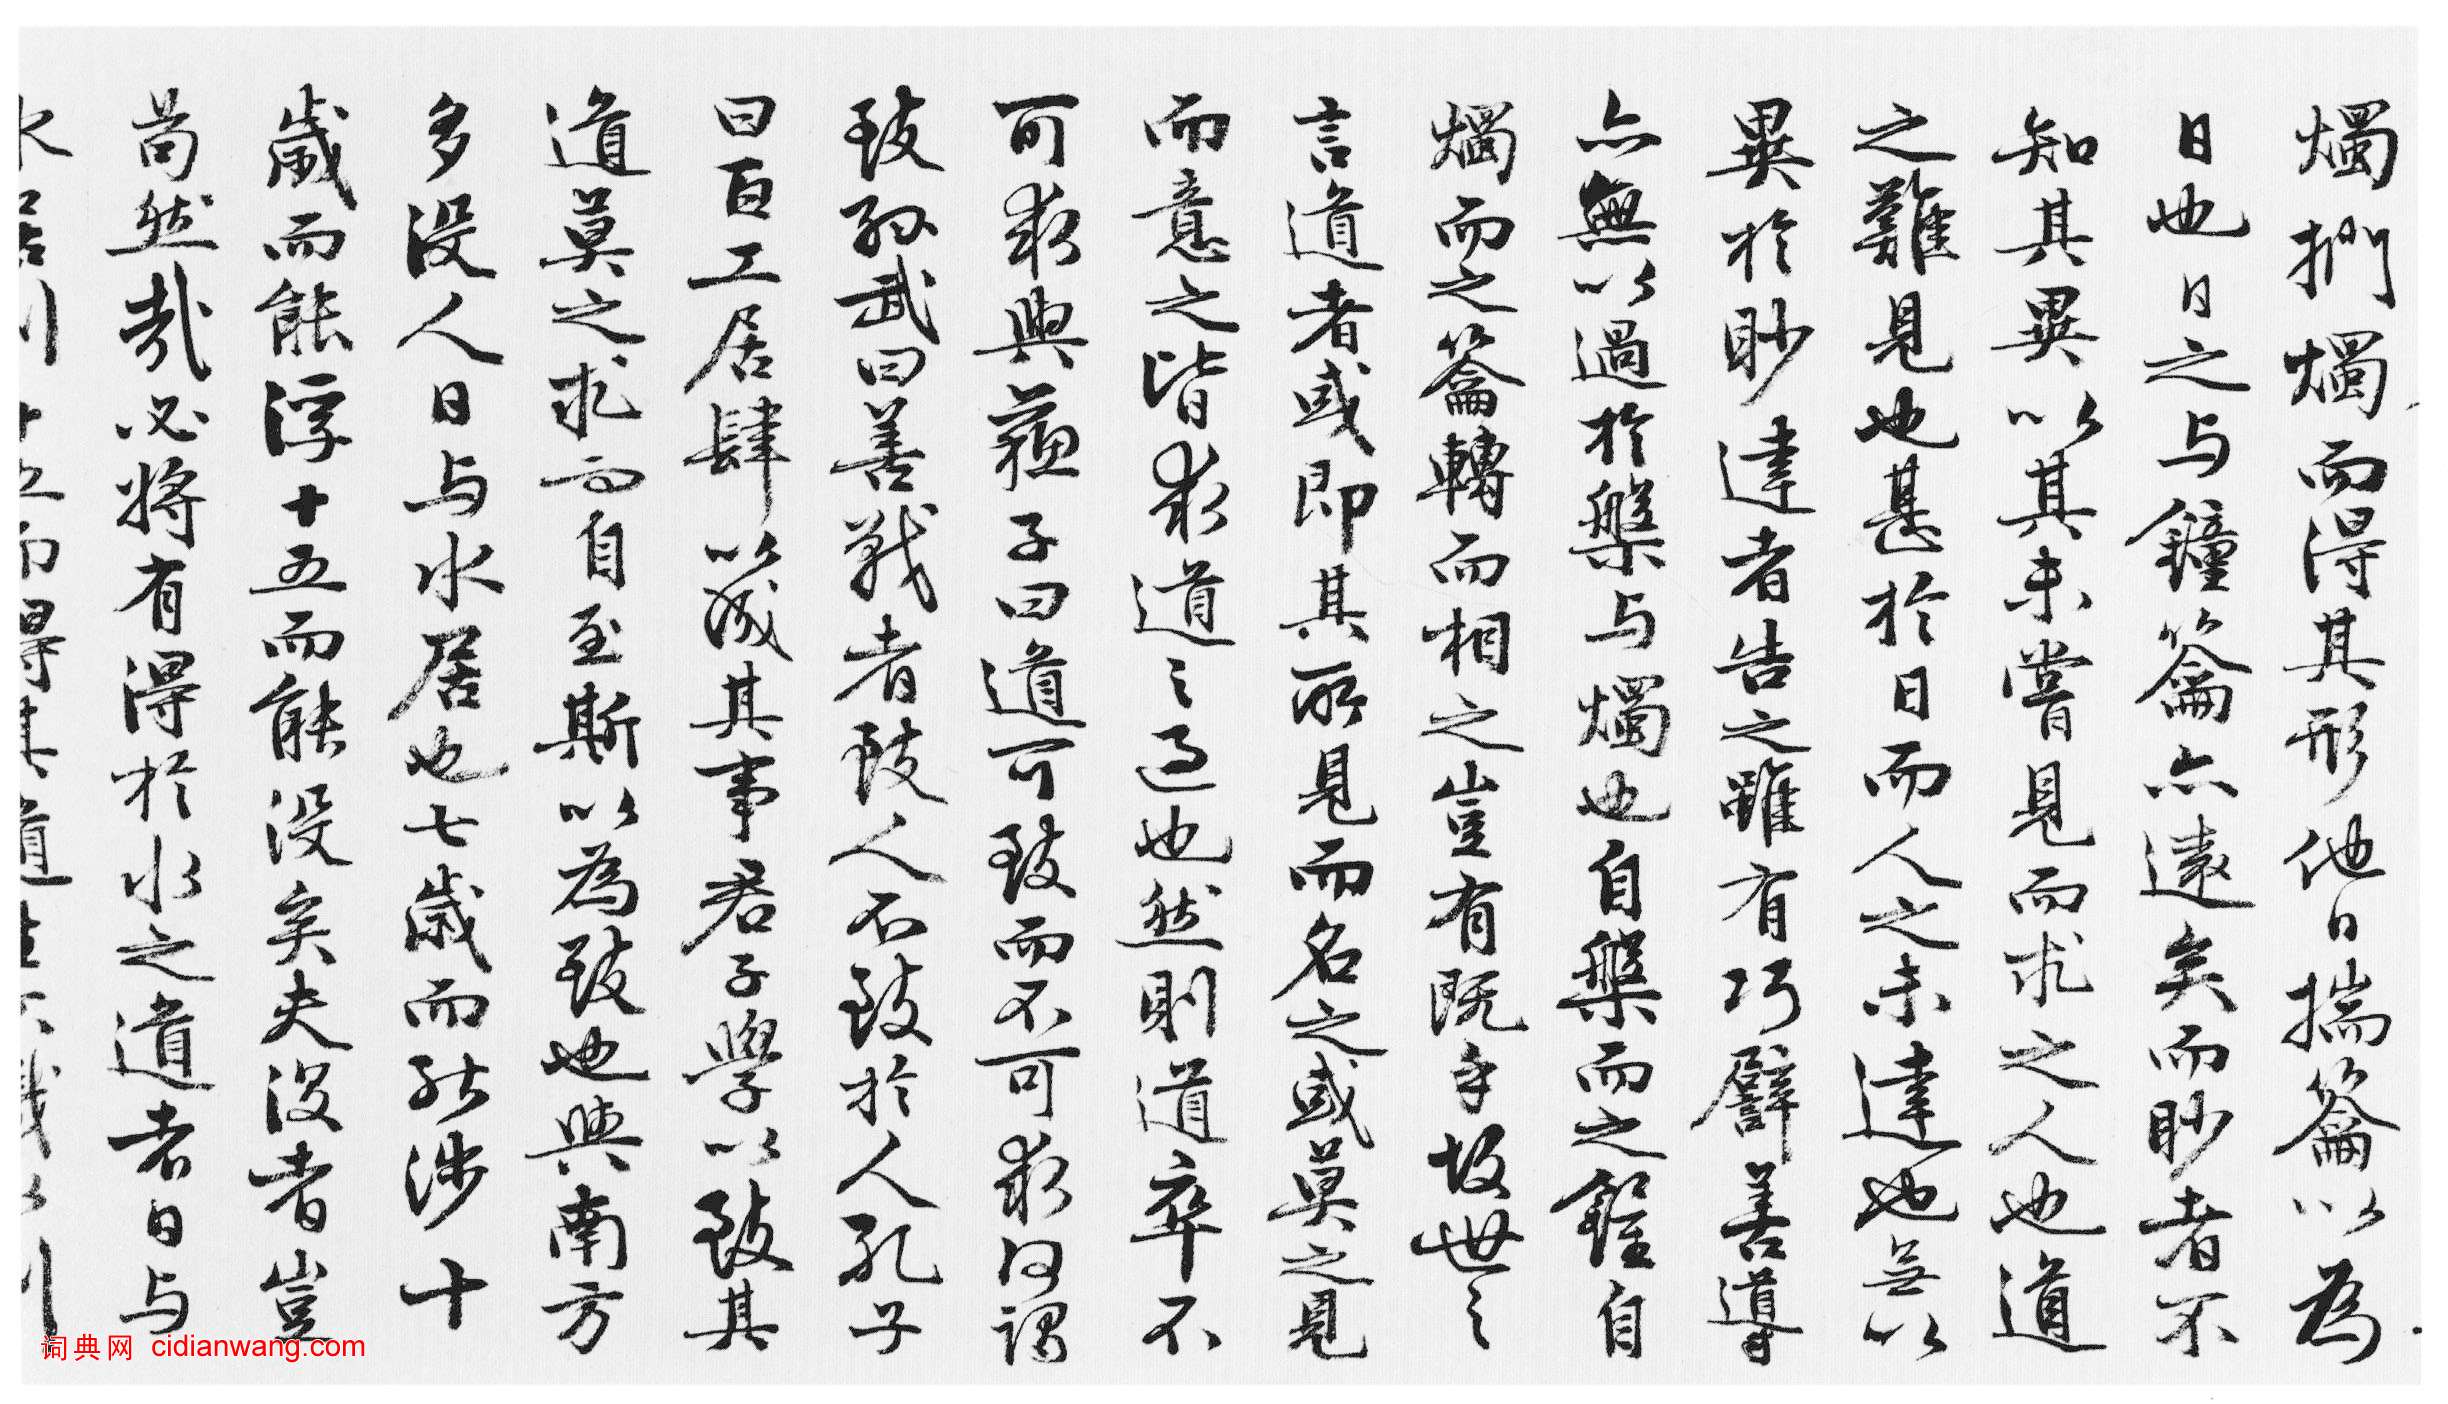 燭捫燭而得其形他日揣籥以為
日也日之与鐘籥亦遠矣而眇者不
知其異以其未嘗見而求之人也道
之難見也甚於日而人之未達也無以
異於眇達者告之雖有巧譬善導
亦無以過於槃与燭也自槃而之鐘自
燭而之籥轉而相之豈有既乎故世之
言道者或即其所見而名之或莫之見
而意之皆求道之過也然則道卒不
可求與蘇子曰道可致而不可求何謂
致孫武曰善戰者致人不致於人孔子
曰百工居肆以成其事君子學以致其
道莫之求而自至斯以為致也與南方
多没人日与水居也七歲而能涉十
歲而能浮十五而能没矣夫没者豈
苟然哉必將有得於水之道者日与
水居則十五而得其道生不識水則
词典网 cidianwang.com